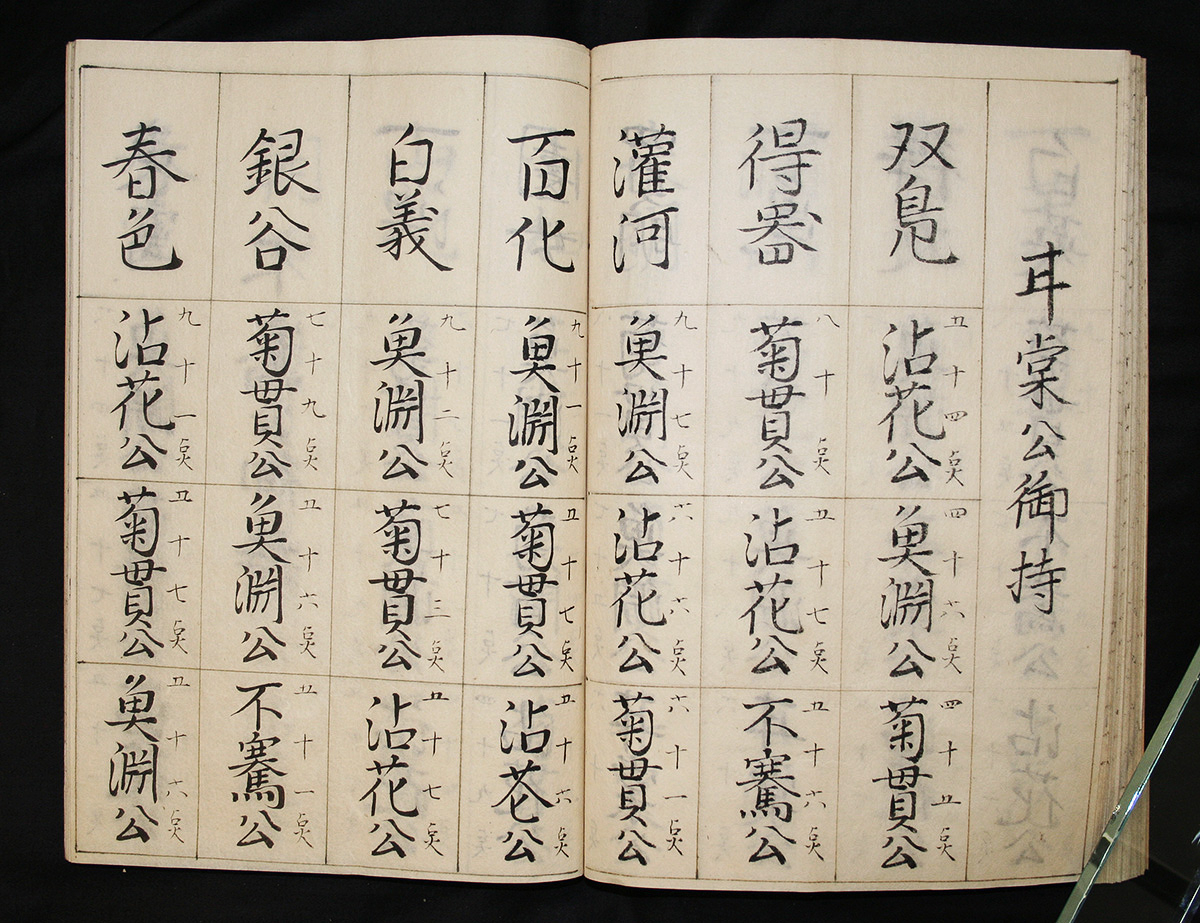 甘棠公御持
双鳧
五十四点
沾花公
四十六点
奠淵公
四十五点
菊貫公
得器
八十点
菊貫公
五十七点
沾花公
五十六点
不騫公
灌河
九十七点
奠淵公
六十六点
沾花公
六十一点
菊貫公
百化
九十一点
奠淵公
五十七点
菊貫公
五十六点
沾花公
白義
九十二点
奠淵公
七十三点
菊貫公
五十七点
沾花公
銀谷
七十九点
菊貫公
五十六点
奠淵公
五十一点
不騫公
春色
九十一点
沾花公
五十七点
菊貫公
五十六点
奠淵公